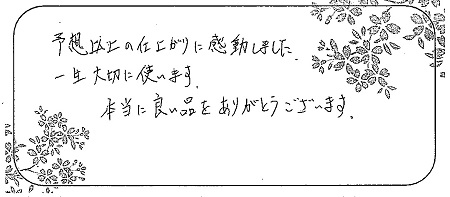 予想以上の仕上がりに感動しました。
一生大切に使います。
本当に良い品をありがとうございます。